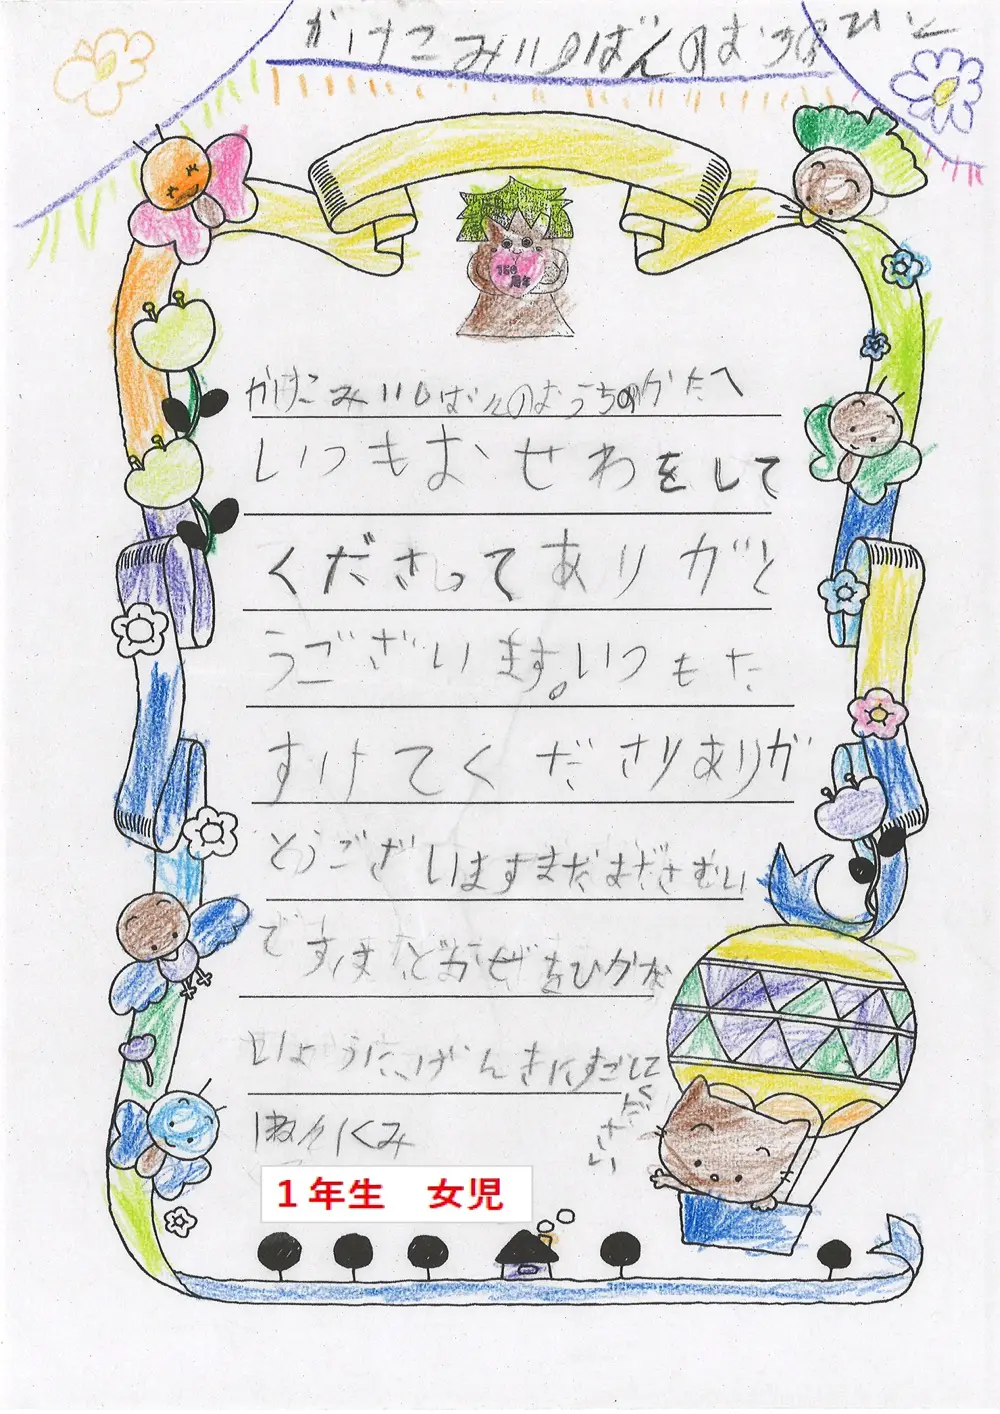 かけこみ110ばんのおうちのひと
150
周年
かけこみ110ばんのおうちのかたへ
いつもおせわをして
くださってありがと
うございます。いつもた
すけてくださりありが
とうございますまだまださむい
ですけどかぜをひかな
いようにげんきにすごして
ください
1ねん1くみ
1年生 女児